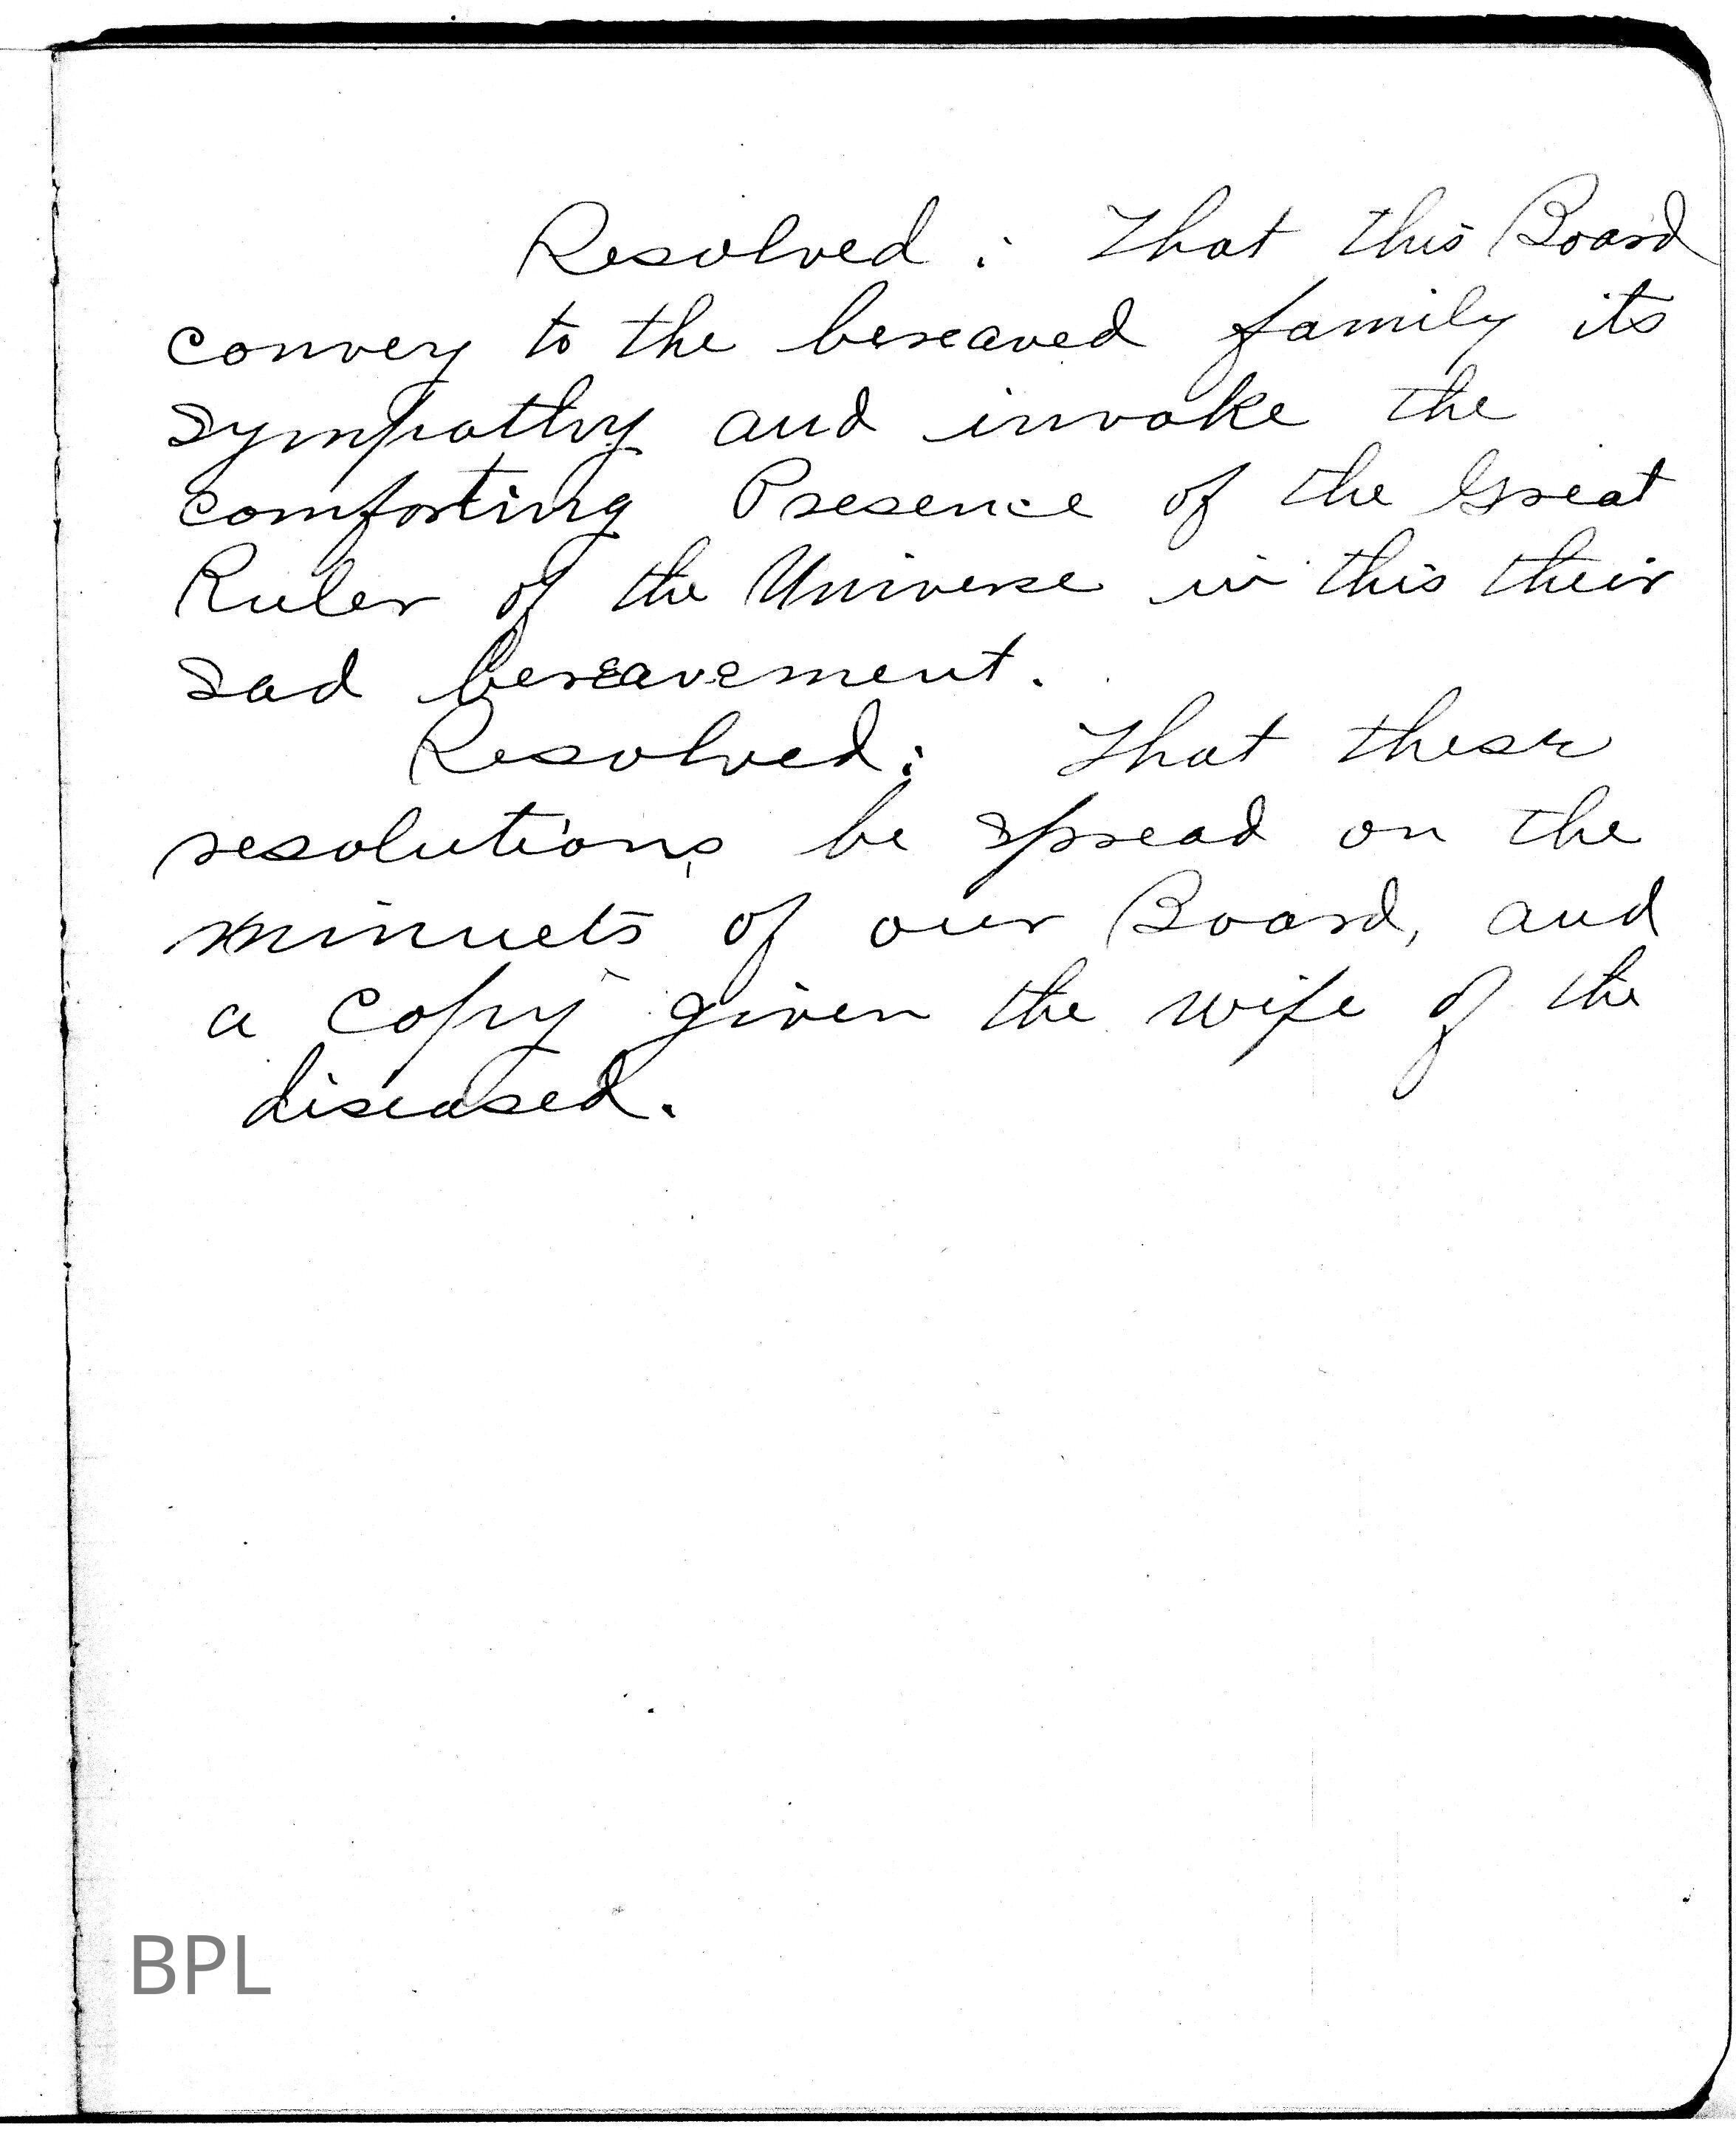 Resolved : That this Board
convey to the bereaved family its
sympathy and invoke the
comforting Presence of the Great
Ruler of the Universe in this their
sad bereavement.
Resolved: That these
resolutions be spread on the
minuets of our Board, and
a copy given the wife of the
diseased.
BPL